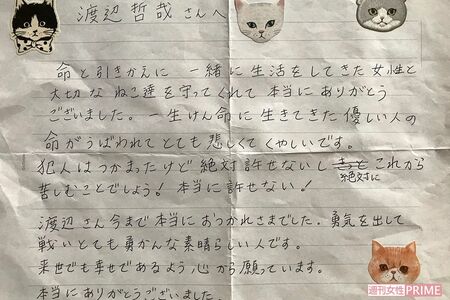 渡辺哲哉さんへ
命と引きかえに 一緒に生活をしてきた女性と
大切な ねこ達を守ってくれて 本当にありがとう
ございました。一生けん命に 生きてきた優しい人の
命がうばわれて とても 悲しくて くやしいです。
犯人はつかまったけど 絶対 許せないし きっと これから
絶対に
苦しむことでしょう! 本当に許せない!
渡辺さん今まで本当におつかれさまでした。勇気を出して
戦いとても勇かんな素晴らしい人です。
来世でも幸せであるよう 心から願っています。
本当にありがとうございました。
週刊女性PRIME